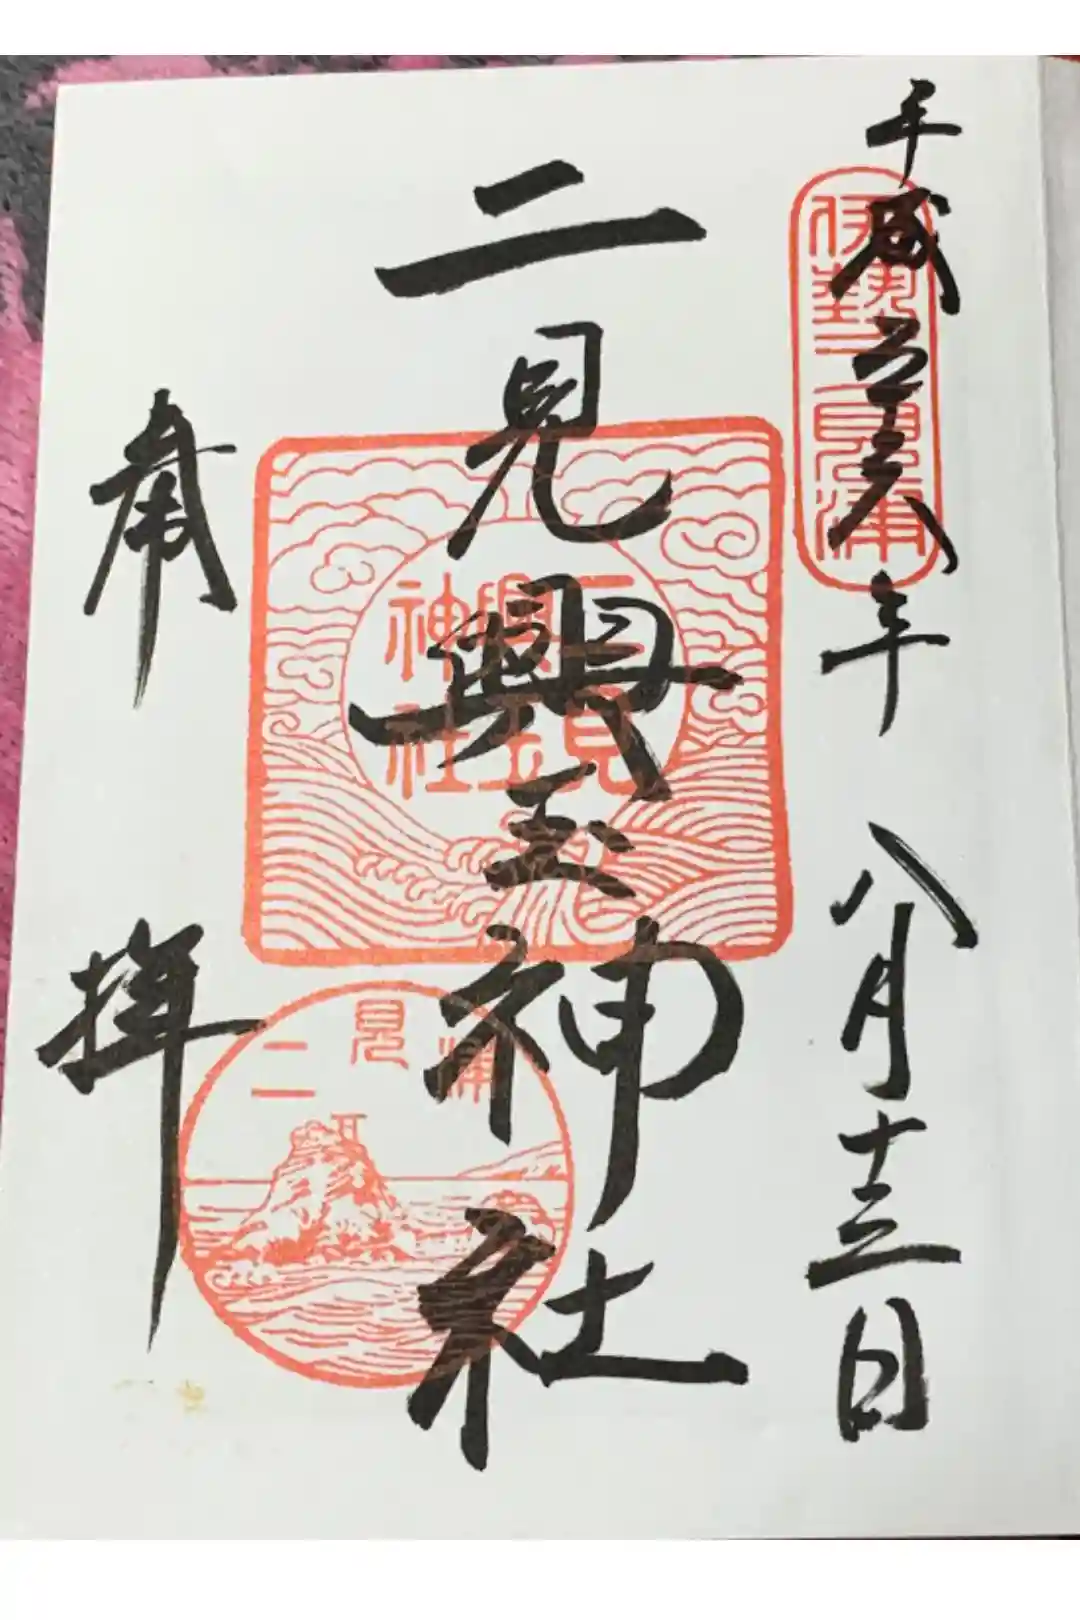 平成二十六年 八月十三日
伊勢二見浦
二見興玉神社
二見
興玉
神社
奉拝
二見浦